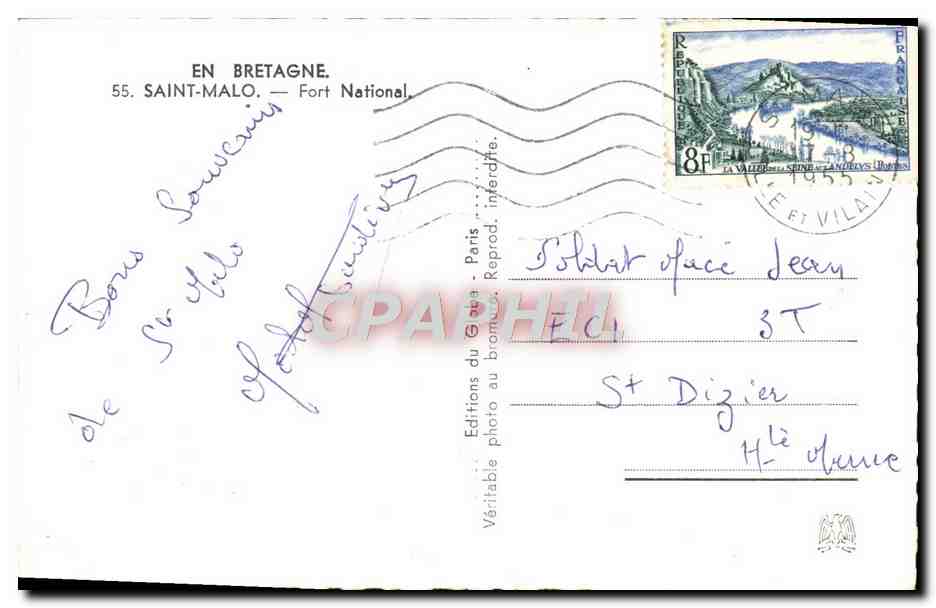 EN BRETAGNE.
55. SAINT-MALO. — Fort National.
Bons Souvenirs
de St Malo
RÉPUBLIQUE FRANÇAISE
8F
LA VALLÉE DE LA SEINE AUX ANDELYS POSTES
1955
ET VILAINE
Soldat Macé Jean
ECI 3T
St Dizier
Hte Marne
Editions du Globe - Paris
Véritable photo au bromure. Reprod. interdite.
CPAPHIL